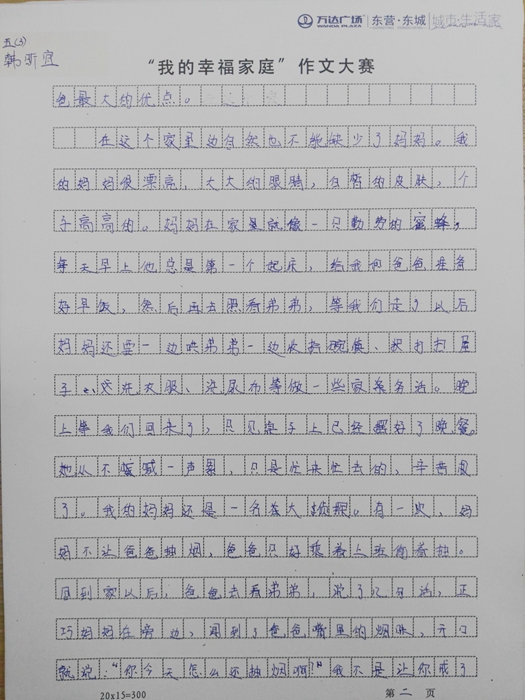 万达广场 东营·东城 城市·生活家
五(3)
韩昕宜
“我的幸福家庭”作文大赛
爸最大的优点。
在这个家里边自然也不能缺少了妈妈。我
的妈妈很漂亮,大大的眼睛,白皙的皮肤,个
子高高的。妈妈在家里就像一只勤劳的蜜蜂,
每天早上他总是第一个起床,给我和爸爸准备
好早饭,然后再去照看弟弟,等我们走了以后
妈妈还要一边哄弟弟一边收拾碗筷、扫扫屋
子、洗衣服、洗尿布等做一些家务活。晚
上等我们回来了,只见桌子上已经摆好了晚餐。
她从不喊一声累,只是忙来忙去的,辛苦极
了。我的妈妈还是一名大侦探。有一次,妈
妈不让爸爸抽烟,爸爸只好趁着上班偷着抽。
回到家以后,爸爸去看弟弟,说了几句话,正
巧妈妈在旁边,闻到了爸爸嘴里的烟味,开口
就说:“你今天怎么还抽烟啊?”我不是让你戒了
20x15=300 第二页